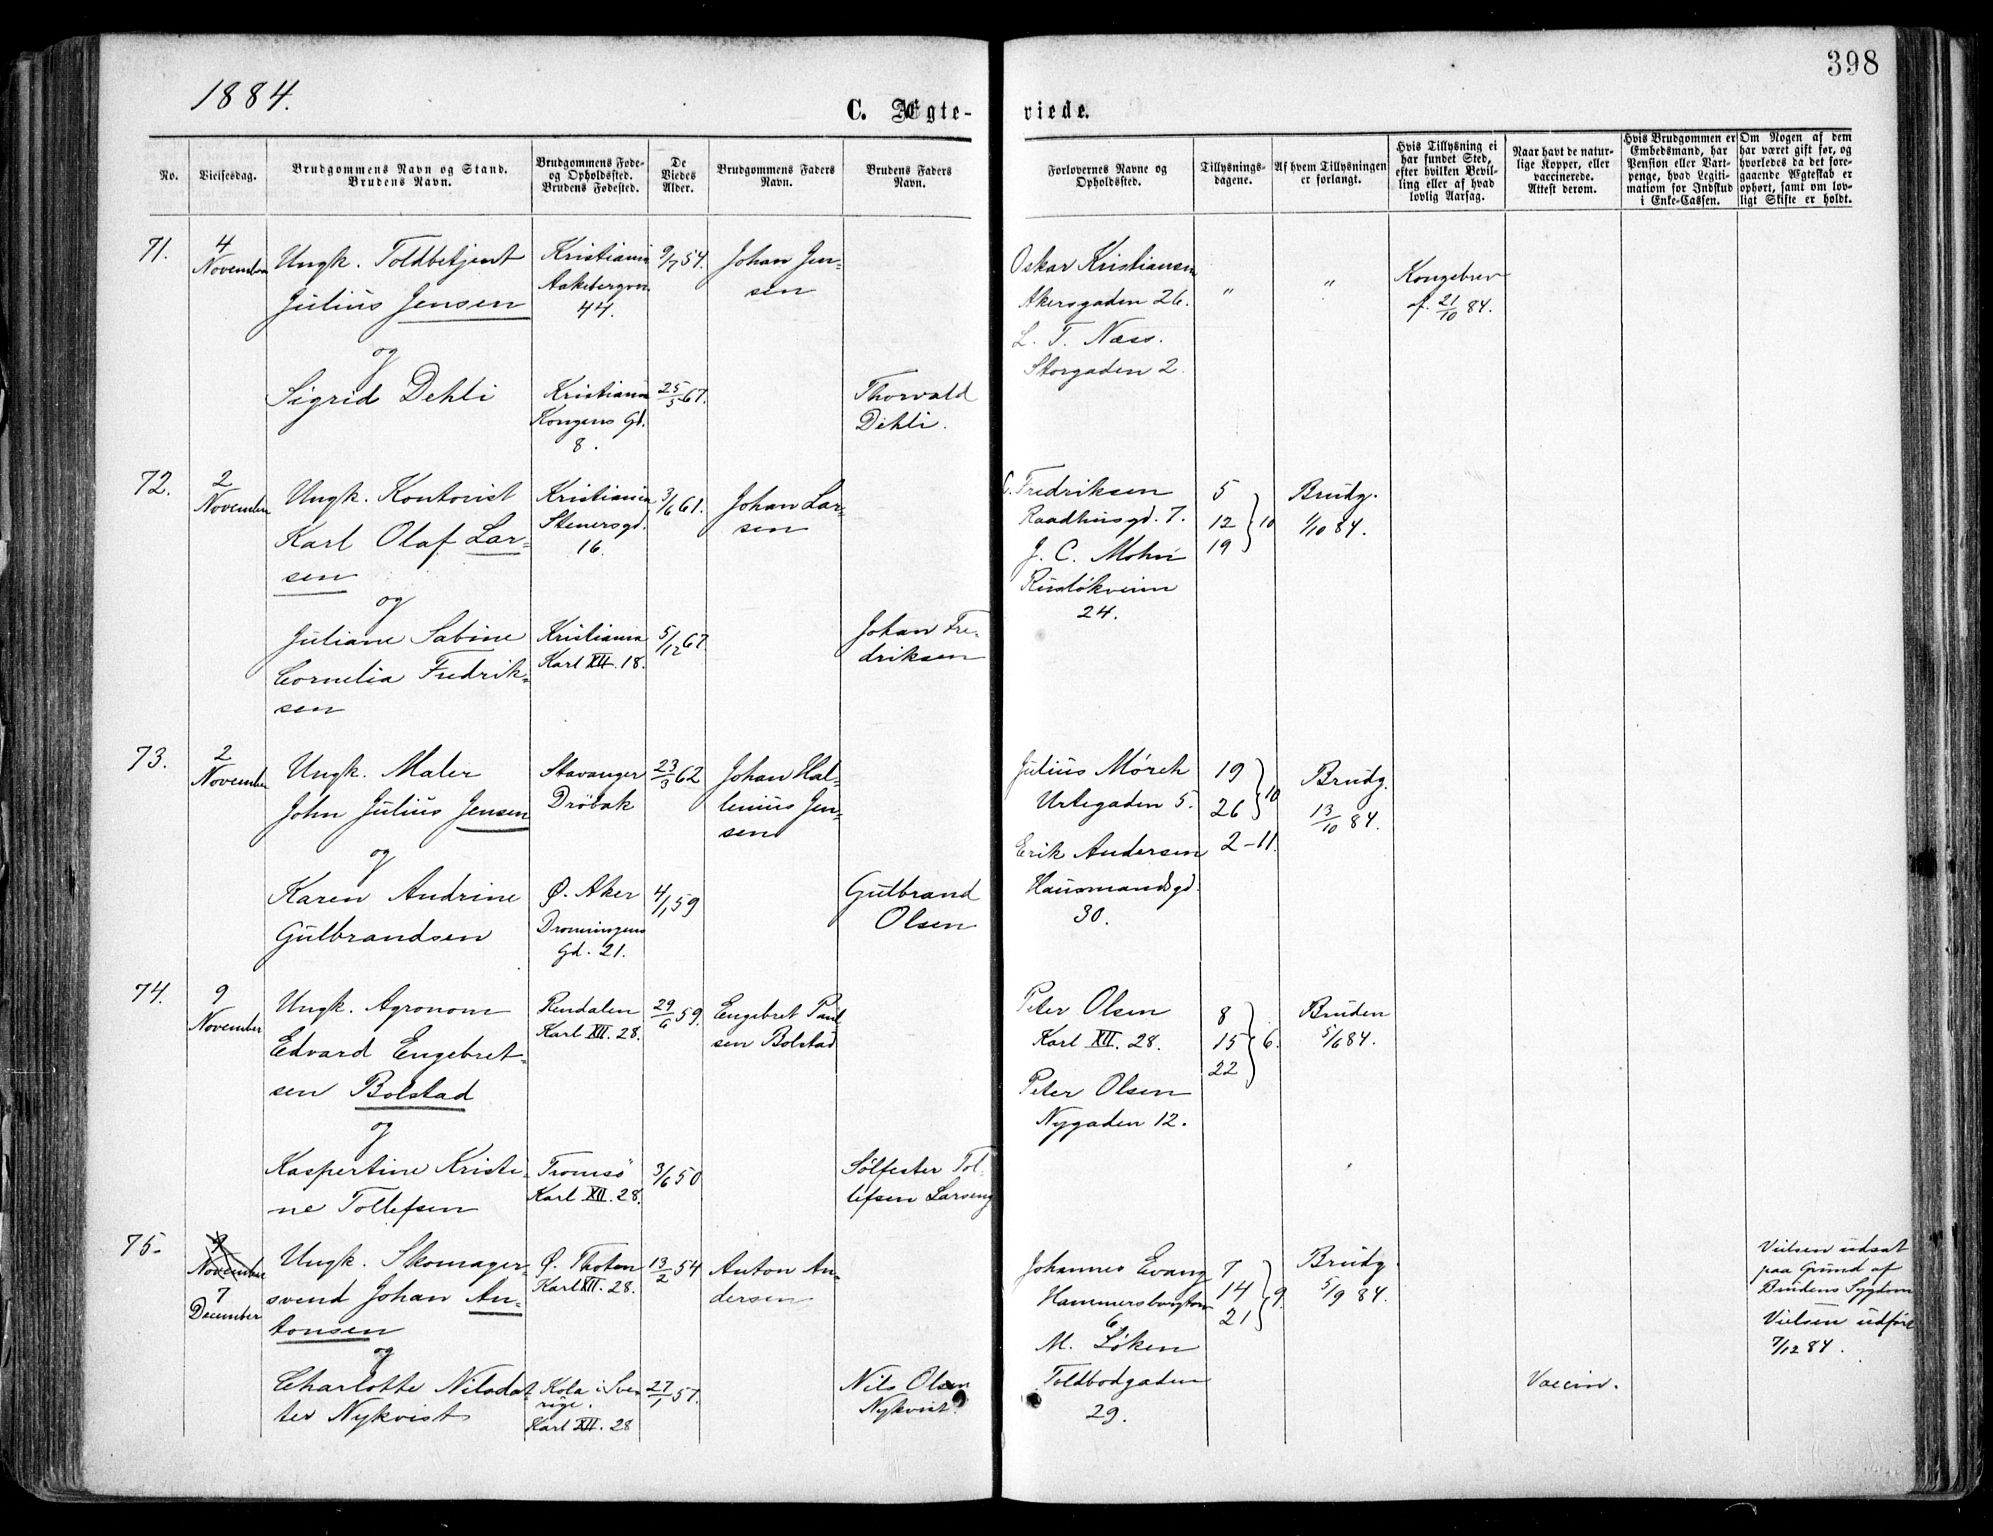 398
1884.
C. Ægte-
viede.
No.
Vielsesdag.
Brudgommens Navn og Stand.
Brudens Navn.
Brudgommens Føde-
og Opholdssted.
Brudens Fødested.
De
Viedes
Alder.
Brudgommens Faders
Navn.
Brudens Faders
Navn.
Forlovernes Navne og
Opholdssted.
Tillysnings-
dagene.
Af hvem Tillysningen
er forlangt.
Hvis Tillysning ei
har fundet Sted,
efter hvilken Bevil-
ling eller af hvad
lovlig Aarsag.
Naar havt de natur-
lige Kopper, eller
vaccinerede.
Attest derom.
Hvis Brudgommen er
Embedsmand, har
Pension eller Vart-
penge, hvad Legiti-
mation for Indskud
i Enke-Cassen.
Om Nogen af dem
har været gift før, og
hvorledes da det fore-
gaaende Ægteskab er
ophørt, samt om lov-
ligt Skifte er holdt.
71.
4
November
Ungk. Toldbetjent
Julius Jensen
og
Sigrid Dehli
Kristiania
Aakebergvn
44.
Kristiania
Kongens Gd.
8.
9/7 54.
25/5 67.
Johan Jen-
sen
Thorvald
Dehli.
Oskar Kristiansen
Akersgaden 26.
L. T. Næss.
Storgaden 2.
"
"
Kongebrev
af 21/10 84.
72.
2
November
Ungk. Kontorist
Karl Olaf Lar-
sen
og
Juliane Sabine
Cornelia Fredrik-
sen
Kristiania
Stenersgd.
16.
Kristiania
Karl XII. 18.
3/6 61.
5/12 67
Johan Lar-
sen
Johan Fre-
driksen
C. Fredriksen
Raadhusgd. 7.
J. C. Mohn
Rusløkveien
24.
5
12
19
10
Brudg.
1/10 84.
73.
2
November
Ungk. Maler
John Julius Jensen
og
Karen Andrine
Gulbrandsen
Stavanger
Drøbak
Ø. Aker
Dronningens
Gd. 21.
23/3 62
4/1 59
Johan Hal-
lenius Jen-
sen
Gulbrand
Olsen
Julius Mørch
Urtegaden 5.
Erik Andersen
Hausmandsgd.
30.
19
26
10
2-11.
Brudg.
13/10 84.
74.
9
November
Ungk. Agronom
Edvard Engebret-
sen Bolstad
og
Kaspertine Kristi-
ne Tollefsen
Rendalen
Karl XII. 28.
Tromsö
Karl XII. 28.
29/6 59.
3/6 50
Engebret Paul
sen Bolstad
Sølfester Tol-
lefsen Larseng
Peter Olsen
Karl XII. 28.
Peter Olsen
Nygaden 12.
8
15
22
6.
Bruden
5/6 84.
75.
9
November
7
December
Ungk. Skomager-
svend Johan An-
tonsen
og
Charlotte Nilsdat-
ter Nykvist
Ø. Thoten
Karl XII. 28.
Kola i Sve-
rige.
Karl XII. 28
13/2 54
27/1 57.
Anton An-
dersen
Nils Olsen
Nykvist.
Johannes Evang
Hammersborgtorv
6
M. Løken
Toldbodgaden
29.
7
14
21
9.
Brudg.
5/9 84.
Vaccin.
Vielsen udsat
paa Grund af
Brudens Sygdom
Vielsen udført
7/12 84.